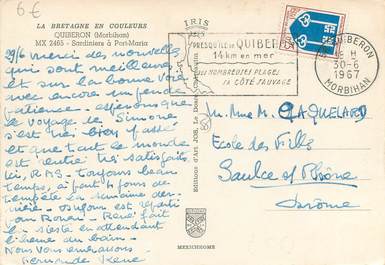 6€
LA BRETAGNE EN COULEURS
QUIBERON (Morbihan)
MX 2465 - Sardiniers à Port-Maria
IRIS
PRESQU'ILE DE QUIBERON
14 km en mer
SES NOMBREUSES PLAGES
SA CÔTE SAUVAGE
QUIBERON
H
30-6
1967
MORBIHAN
29/6 merci des nouvelles
qui sont meilleures
et sur la bonne voie
avec encore un peu de
patience. espérons que
le voyage de Simone
s'est très bien passé
et que tout le monde
est rentré très satisfaits
ici, RAS - toujours beau
temps, à part 4 jours de
tempête la semaine der-
nière. est reparti
sur Rouen - René fait
la sieste en attendant
l'heure du bain -
Nous vous embrassons
Fernande René
Editions d'Art JOS
MEXICHROME
M. Mme M. CAQUELARD
Ecole des Filles
Saulce s/ Rhône
Drôme